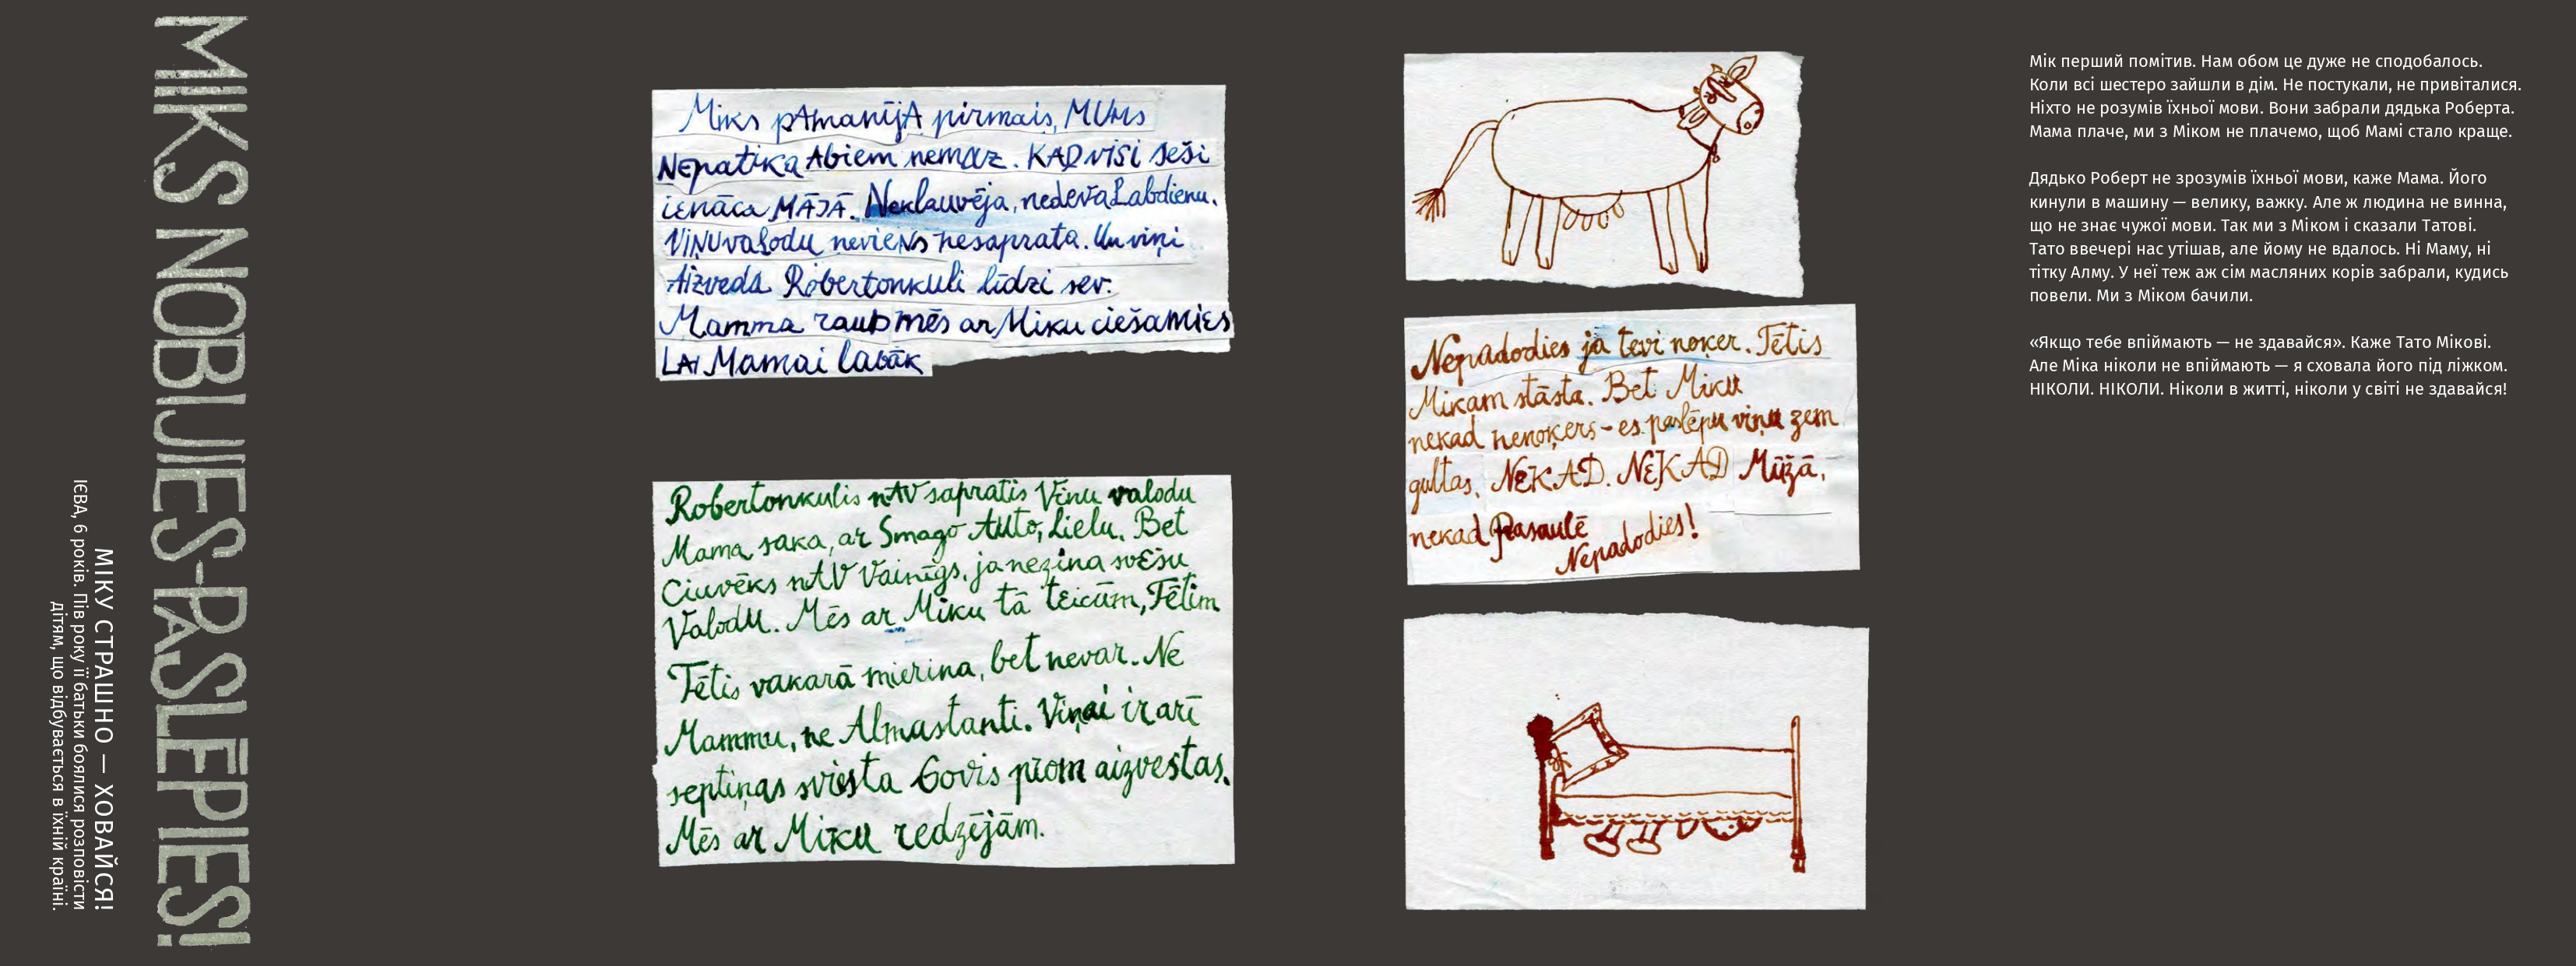 MIKS NOBIJIES-PASLĒPIES!
МІКУ СТРАШНО — ХОВАЙСЯ!
ІЄВА, 6 років. Пів року її батьки боялися розповісти
дітям, що відбувається в їхній країні.
Miks pAmanījA pirmais, MUMs
NEpatika Abiem nemaz. KAD visi seši
ienāca MĀJĀ. Neklauvēja, nedeva Labdienu.
VIŅU valodu neviens nesaprata. Un viņi
Aizveda Robertonkuli līdzi sev.
Mamma raud mēs ar Miku ciešamies
LAI Mamai labāk
Robertonkulis nAV sapratis Viņu valodu
Mama saka, ar Smago Auto, Lielu. Bet
Ciuvēks nAV Vainīgs, ja nezina svEšu
Valodu. Mēs ar Miku tā teicām, Tētim
Tētis vakarā mierina, bet nevar. Ne
Mammu, ne Almastanti. Viņai ir arī
septiņas sviesta Govis prom aizvestas.
Mēs ar Miku redzējām.
Nepadodies ja tevi noķer. Tētis
Mikam stāsta. Bet Miku
nekad nenoķers - es paslēpu viņu zem
gultas. NEKAD. NEKAD Mūžā,
nekad Pasaulē
Nepadodies!
Мік перший помітив. Нам обом це дуже не сподобалось.
Коли всі шестеро зайшли в дім. Не постукали, не привіталися.
Ніхто не розумів їхньої мови. Вони забрали дядька Роберта.
Мама плаче, ми з Міком не плачемо, щоб Мамі стало краще.
Дядько Роберт не зрозумів їхньої мови, каже Мама. Його
кинули в машину — велику, важку. Але ж людина не винна,
що не знає чужої мови. Так ми з Міком і сказали Татові.
Тато ввечері нас утішав, але йому не вдалось. Ні Маму, ні
тітку Алму. У неї теж аж сім масляних корів забрали, кудись
повели. Ми з Міком бачили.
«Якщо тебе впіймають — не здавайся». Каже Тато Мікові.
Але Міка ніколи не впіймають — я сховала його під ліжком.
НІКОЛИ. НІКОЛИ. Ніколи в житті, ніколи у світі не здавайся!